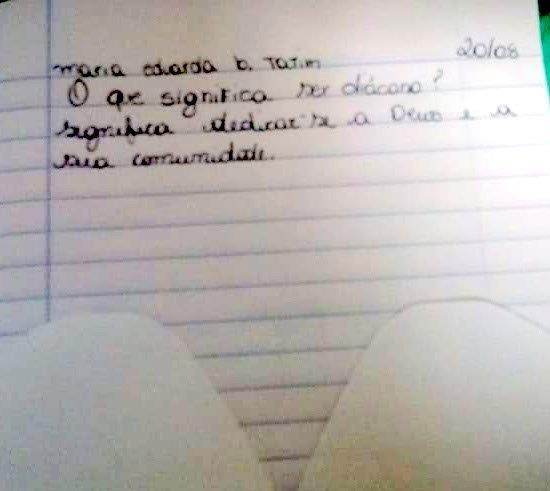 maria eduarda b. Tatim 20/08
① que significa ser diácono?
significa dedicar-se a Deus e a
sua comunidade.